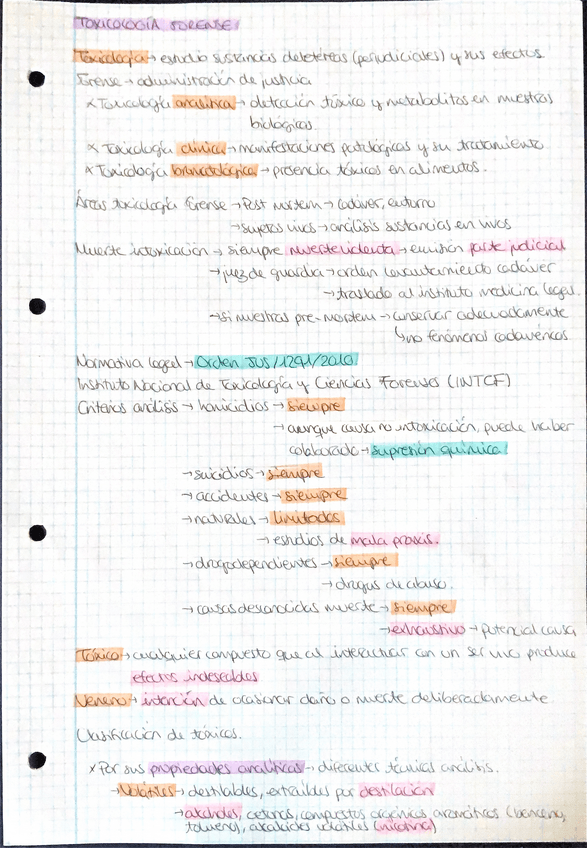 TOXICOLOGÍA FORENSE
Toxicología → estudio sustancias deletéreas (perjudiciales) y sus efectos.
Forense → administración de justicia
× Toxicología analítica → detección tóxico y metabolitos en muestras
biológicas.
× Toxicología clínica → manifestaciones patológicas y su tratamiento
× Toxicología bromatológica → presencia tóxicos en alimentos.
Áreas toxicología forense → Post mortem → cadáver, entorno
→ sujetos vivos → análisis sustancias en vivos.
Muerte intoxicación → siempre muerte violenta → emisión parte judicial
→ juez de guardia → orden levantamiento cadáver
→ traslado al instituto medicina legal.
→ si muestras pre-mortem → conservar adecuadamente
↳ no fenómenos cadavéricos.
Normativa legal → Orden JUS/1291/2010
Instituto Nacional de Toxicología y Ciencias Forenses (INTCF)
Criterios análisis → homicidios → siempre
→ aunque causa no intoxicación, puede haber
colaborado → supresión química
→ suicidios → siempre
→ accidentes → siempre
→ naturales → limitados
→ estudios de mala praxis.
→ drogodependientes → siempre
→ drogas de abuso.
→ causas desconocidas muerte → siempre
→ exhaustivo → potencial causa
Tóxico → cualquier compuesto que al interactuar con un ser vivo produce
efectos indeseables
Veneno → intención de ocasionar daño o muerte deliberadamente.
Clasificación de tóxicos.
× Por sus propiedades analíticas → diferentes técnicas análisis.
→ Volátiles → destilables, extraíbles por destilación
→ alcoholes, cetonas, compuestos orgánicos aromáticos (benceno,
tolueno), alcaloides volátiles (nicotina)